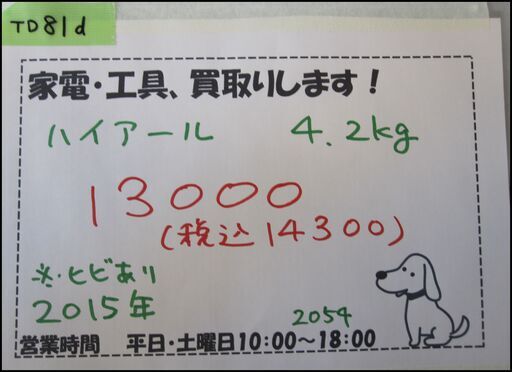 TD81d
家電・工具、買取りします！
ハイアール 4.2kg
13000
(税込14300)
※・ヒビあり
2015年
2054
営業時間 平日・土曜日10:00～18:00